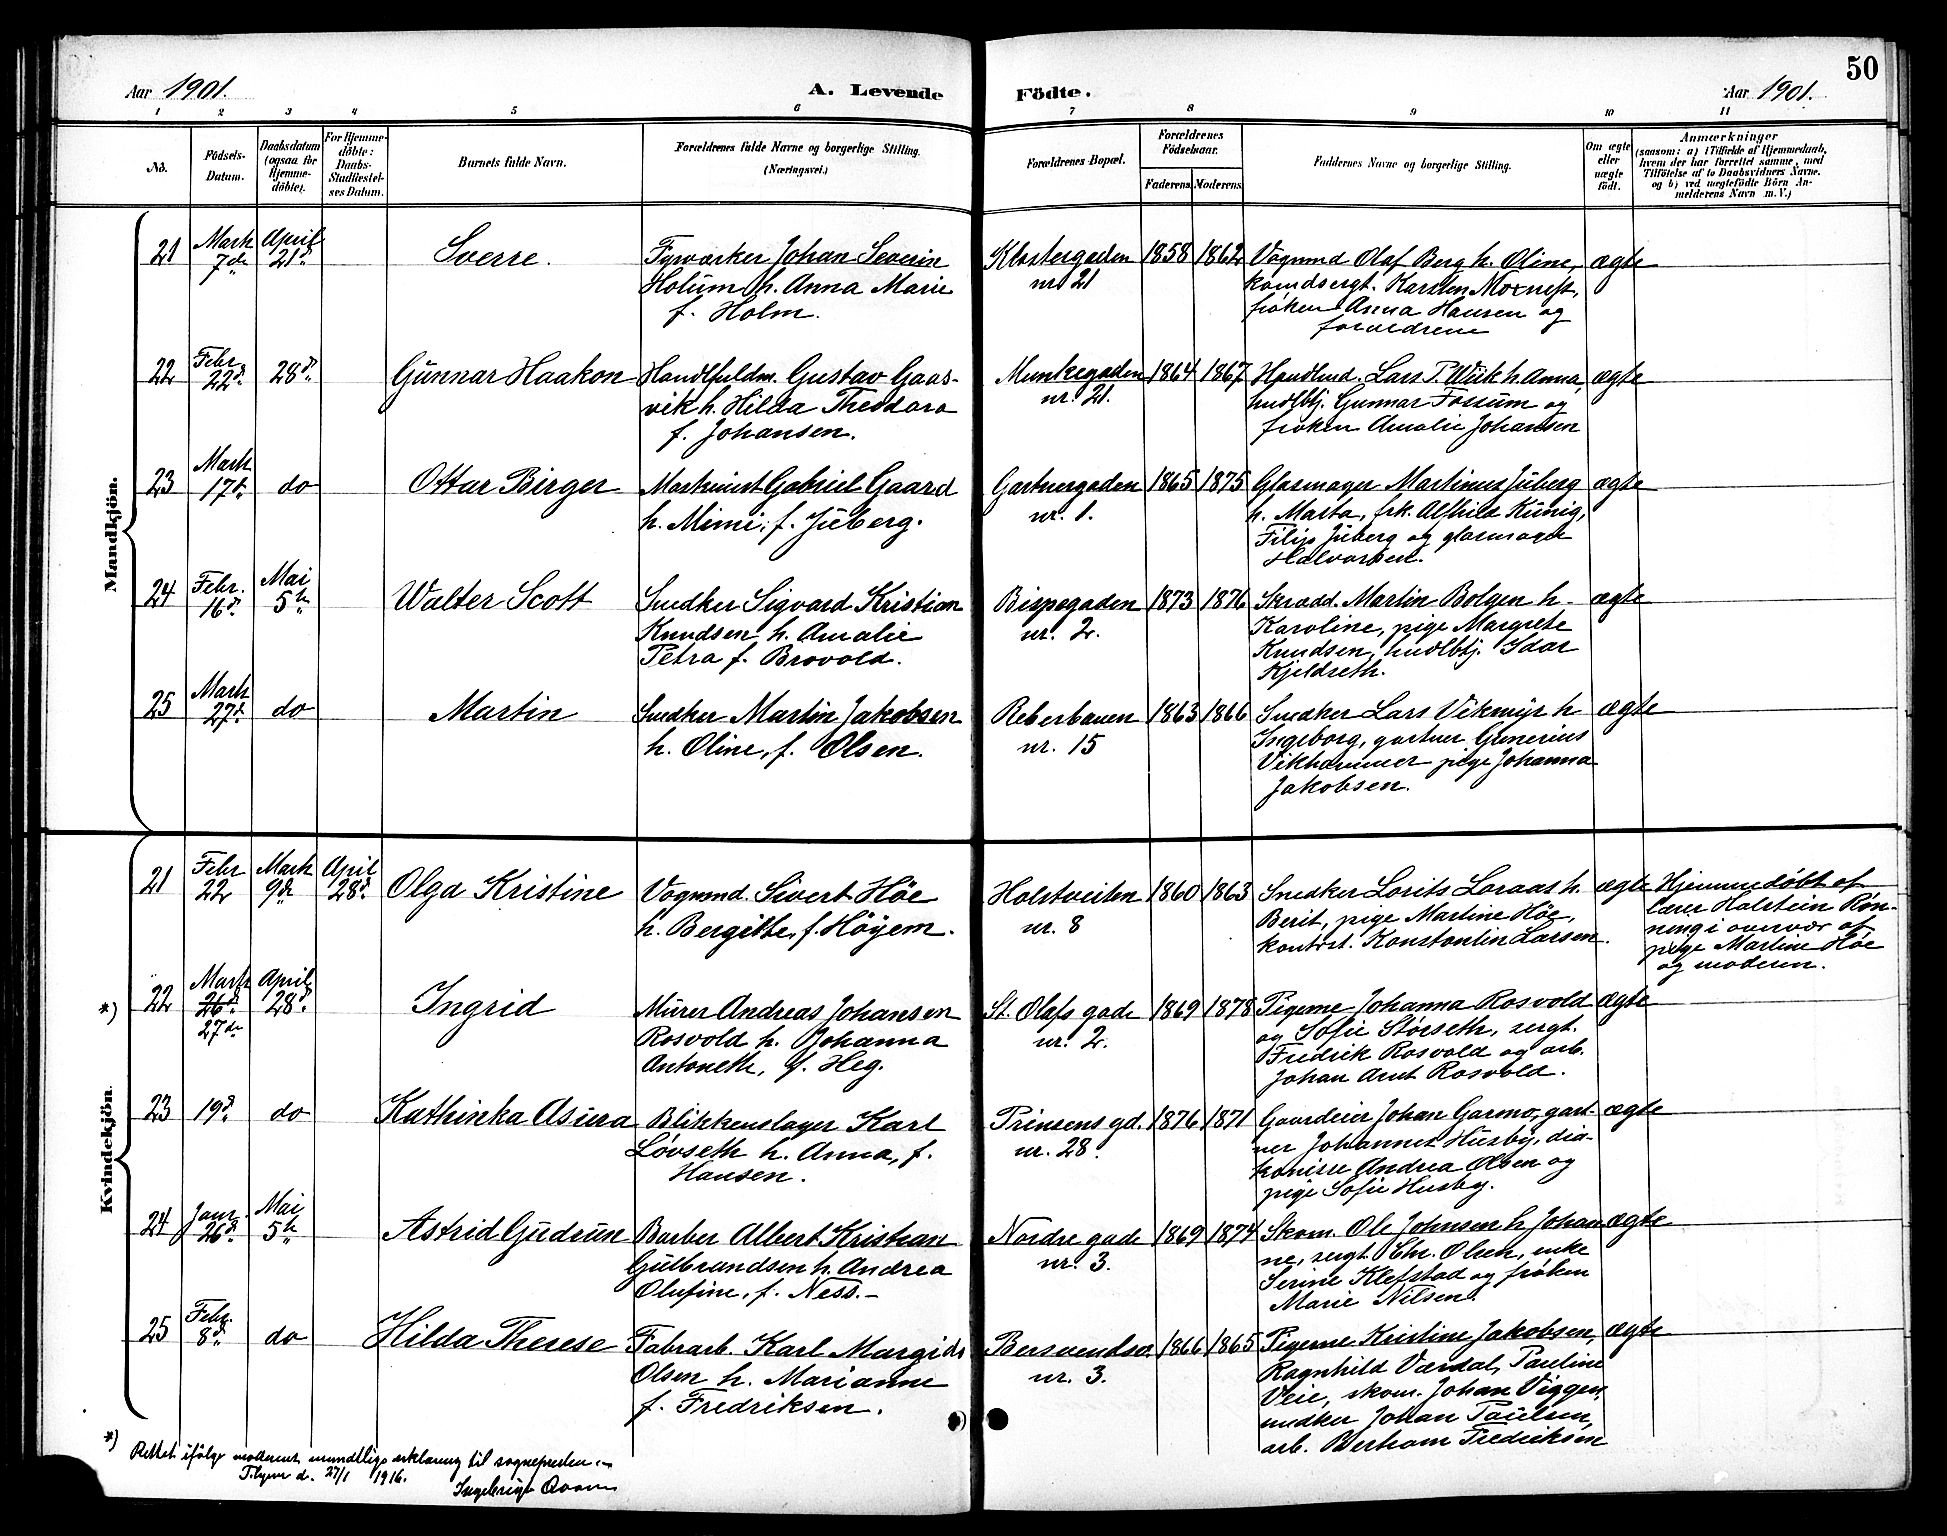 50
Aar 1901.
A. Levende
Födte.
Aar 1901.
1 2 3 4 5 6 7 8 9 10 11
No.
Födsels-
Datum.
Daabsdatum
(ogsaa for
Hjemme-
döbte).
For Hjemme-
döbte:
Daabs-
Stadfæstel-
ses Datum.
Barnets fulde Navn.
Forældrenes fulde Navne og borgerlige Stilling.
(Næringsvei.)
Forældrenes Bopæl.
Forældrenes
Födselsaar.
Faderens. Moderens.
Faddernes Navne og borgerlige Stilling.
Om ægte
eller
uægte
födt.
Anmærkninger
(saasom: a) i Tilfælde af Hjemmedaab,
hvem der har forrettet samme, med
Tilföielse af to Daabsvidners Navne,
og b) ved uægtefödte Börn An-
melderens Navn m. V.)
Mandkjön.
21
Marts
7de
April
21d
Sverre.
Fyrvørker Johan Severin
Holum h. Anna Marie
f. Holm.
Klostergaden
nr 21
1858 1862
Vognmd Olaf Berg h. Oline,
komdsergt. Karsten Moxnefs,
frøken Anna Hansen og
forældrene
ægte
22
Febr
22d
28d
Gunnar Haakon
Handlfuldm. Gustav Gaas-
vik h. Hilda Theodora
f. Johansen.
Munkegaden
nr. 21.
1864 1867
Handlmd. Lars P. Wiik h. Anna,
hndlbtj. Gunnar Fossum og
frøken Amalie Johansen
ægte
23
Marts
17d
do
Ottar Birger
Maskinist Gabriel Gaard
h. Mimi, f. Juberg.
Gartnergaden
nr. 1.
1865 1875
Glasmager Martinus Juberg
h. Marta, frk. Alfhild Kunig,
Filip Juberg og glasmager
Halvorsen.
ægte
24
Febr.
16d
Mai
5te
Walter Scott
Snedker Sigvard Kristian
Knudsen h. Amalie
Petra f. Brovold.
Bispegaden
nr. 2.
1873 1876
Skrædd. Martin Bolgen h.
Karoline, pige Margrete
Knudsen, hndlbtj. Idar
Kjeldseth.
ægte
25
Marts
27d
do
Martin
Snedker Martin Jakobsen
h. Oline, f. Olsen.
Reberbanen
nr. 15
1863 1866
Snedker Lars Vikmyr h
Ingeborg, gartner Gunerius
Vikhammer pige Johanna
Jakobsen.
ægte
Kvindekjön.
21
Febr
22
Marts
9de
April
28d
Olga Kristine
Vognmd. Sivert Høe
h. Bergitte, f. Høyem.
Holstveiten
nr. 8
1860 1863
Snedker Lorits Loraas h.
Berit, pige Martine Høe,
kontrst. Konstantin Larsen.
ægte
Hjemmedøbt af
lærer Holstein Røn-
ning i overvær af
pige Martine Høe
og moderen.
*)
22
Marts
26d
27de
April
28d
Ingrid
Murer Andreas Johansen
Rosvold h. Johanna
Antoneth, f. Heg.
St. Olafs gade
nr. 2.
1869 1878
Pigerne Johanna Rosvold
og Sofie Størseth, sergt.
Fredrik Rosvold og arb.
Johan Arnt Rosvold.
ægte
23
19d
do
Kathinka Asura
Blikkenslager Karl
Løvseth h. Anna, f.
Hansen.
Prinsens gd.
nr. 28.
1876 1871
Gaardeier Johan Garmo, gart-
ner Johannes Husby, dia-
konisse Andrea Olsen og
pige Sofie Husby.
ægte
24
Janr.
26d
Mai
5te
Astrid Gudrun
Barber Albert Kristian
Gulbrandsen h. Andrea
Olufine, f. Ness.-
Nordre gade
nr. 3.
1869 1874
Skom. Ole Johnsen h. Johan
ne, sergt. Chr. Olsen, enke
Serine Klefstad og frøken
Marie Nilsen.
ægte
25
Febr.
8d
do
Hilda Therese
Fabrarb. Karl Margido
Olsen h. Marianne
f. Fredriksen.
Bersvendsv.
nr. 3.
1866 1865
Pigerne Kristine Jakobsen,
Ragnhild Værdal, Pauline
Veie, skom. Johan Viggen,
snedker Johan Paulsen,
arb. Berthom Fredriksen
ægte
*)
Rettet ifølge moderens mundtlige erklæring til sognepresten
d. 27/1 1916.